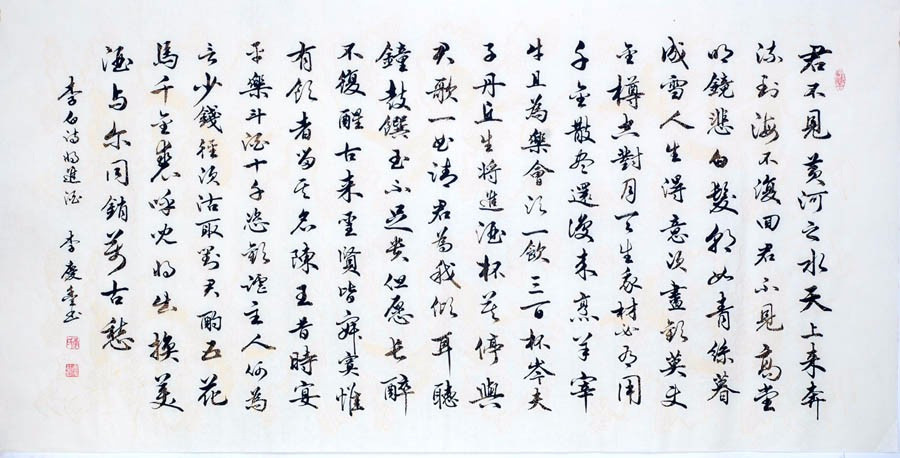 君不見黃河之水天上来奔
流到海不復回君不見高堂
明鏡悲白髮朝如青絲暮
成雪人生得意須盡歡莫使
金樽空對月天生我材必有用
千金散盡還復来烹羊宰
牛且為樂會須一飲三百杯岑夫
子丹丘生將進酒杯莫停與
君歌一曲請君為我傾耳聽
鐘鼓饌玉不足貴但愿長醉
不復醒古来聖賢皆寂寞惟
有飲者留其名陳王昔時宴
平樂斗酒十千恣歡謔主人何為
言少錢徑須沽取對君酌五花
馬千金裘呼兒將出換美
酒与尔同銷萬古愁
李白詩將進酒 李慶書